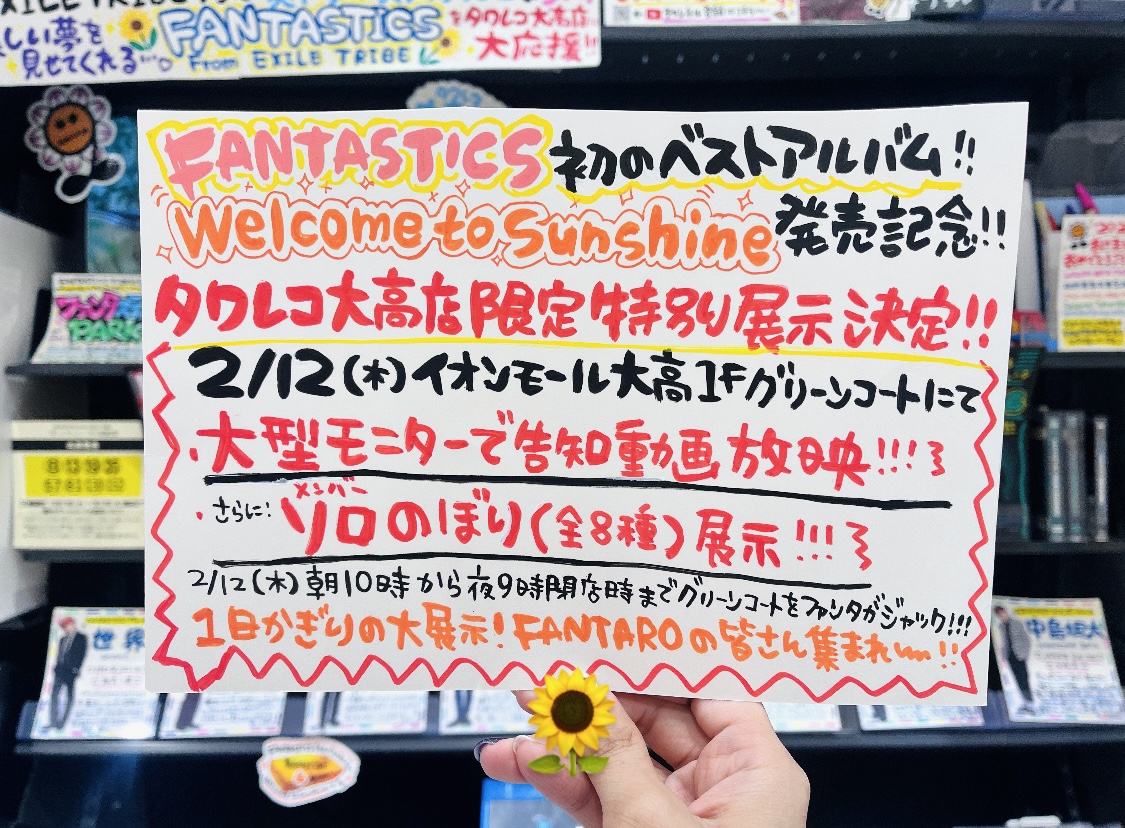 FANTASTICS
をタワレコ大高店
しい夢を
見せてくれる…
From EXILE TRIBE
大応援!!
FANTASTICS 初のベストアルバム!!
Welcome to Sunshine 発売記念!!
タワレコ大高店限定特別展示決定!!
2/12(木)イオンモール大高1Fグリーンコートにて
・大型モニターで告知動画放映!!!
・さらに!メンバーソロのぼり(全8種)展示!!!
2/12(木)朝10時から夜9時閉店時までグリーンコートをファンタがジャック!!!
1日かぎりの大展示!FANTAROの皆さん集まれ〜!!
PARK
世界
中島颯太